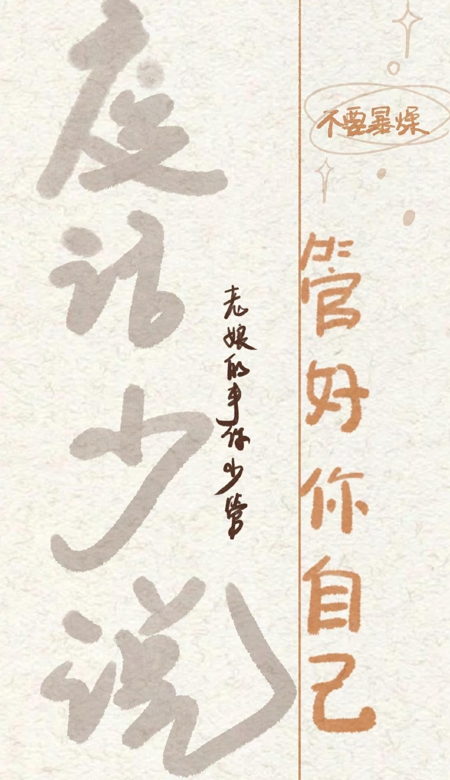 废话少说
老娘的事你少管
不要暴燥
管好你自己